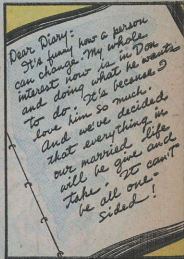 Dear Diary:
It's funny how a person
can change. My whole
interest now is in Don
and doing what he wants
to do. It's because I
love him so much.
And we've decided
that everything in
our married life
will be give and
take. It can't
be all one-
sided!